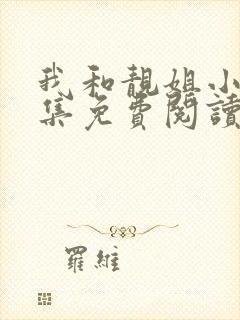 我和靚姐小
集免費閱讀
羅維